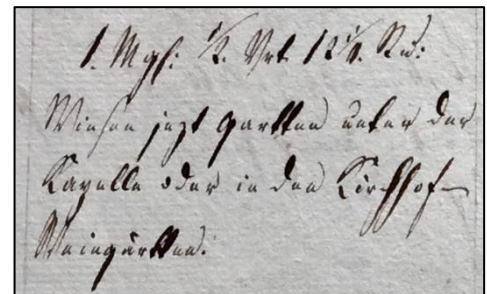 1. Mgf: ½. Vrt. 12½. Ru:
Wiesen jezt Gartten unter der
Kapelle oder in den Kirchhof-
Weingärtten.